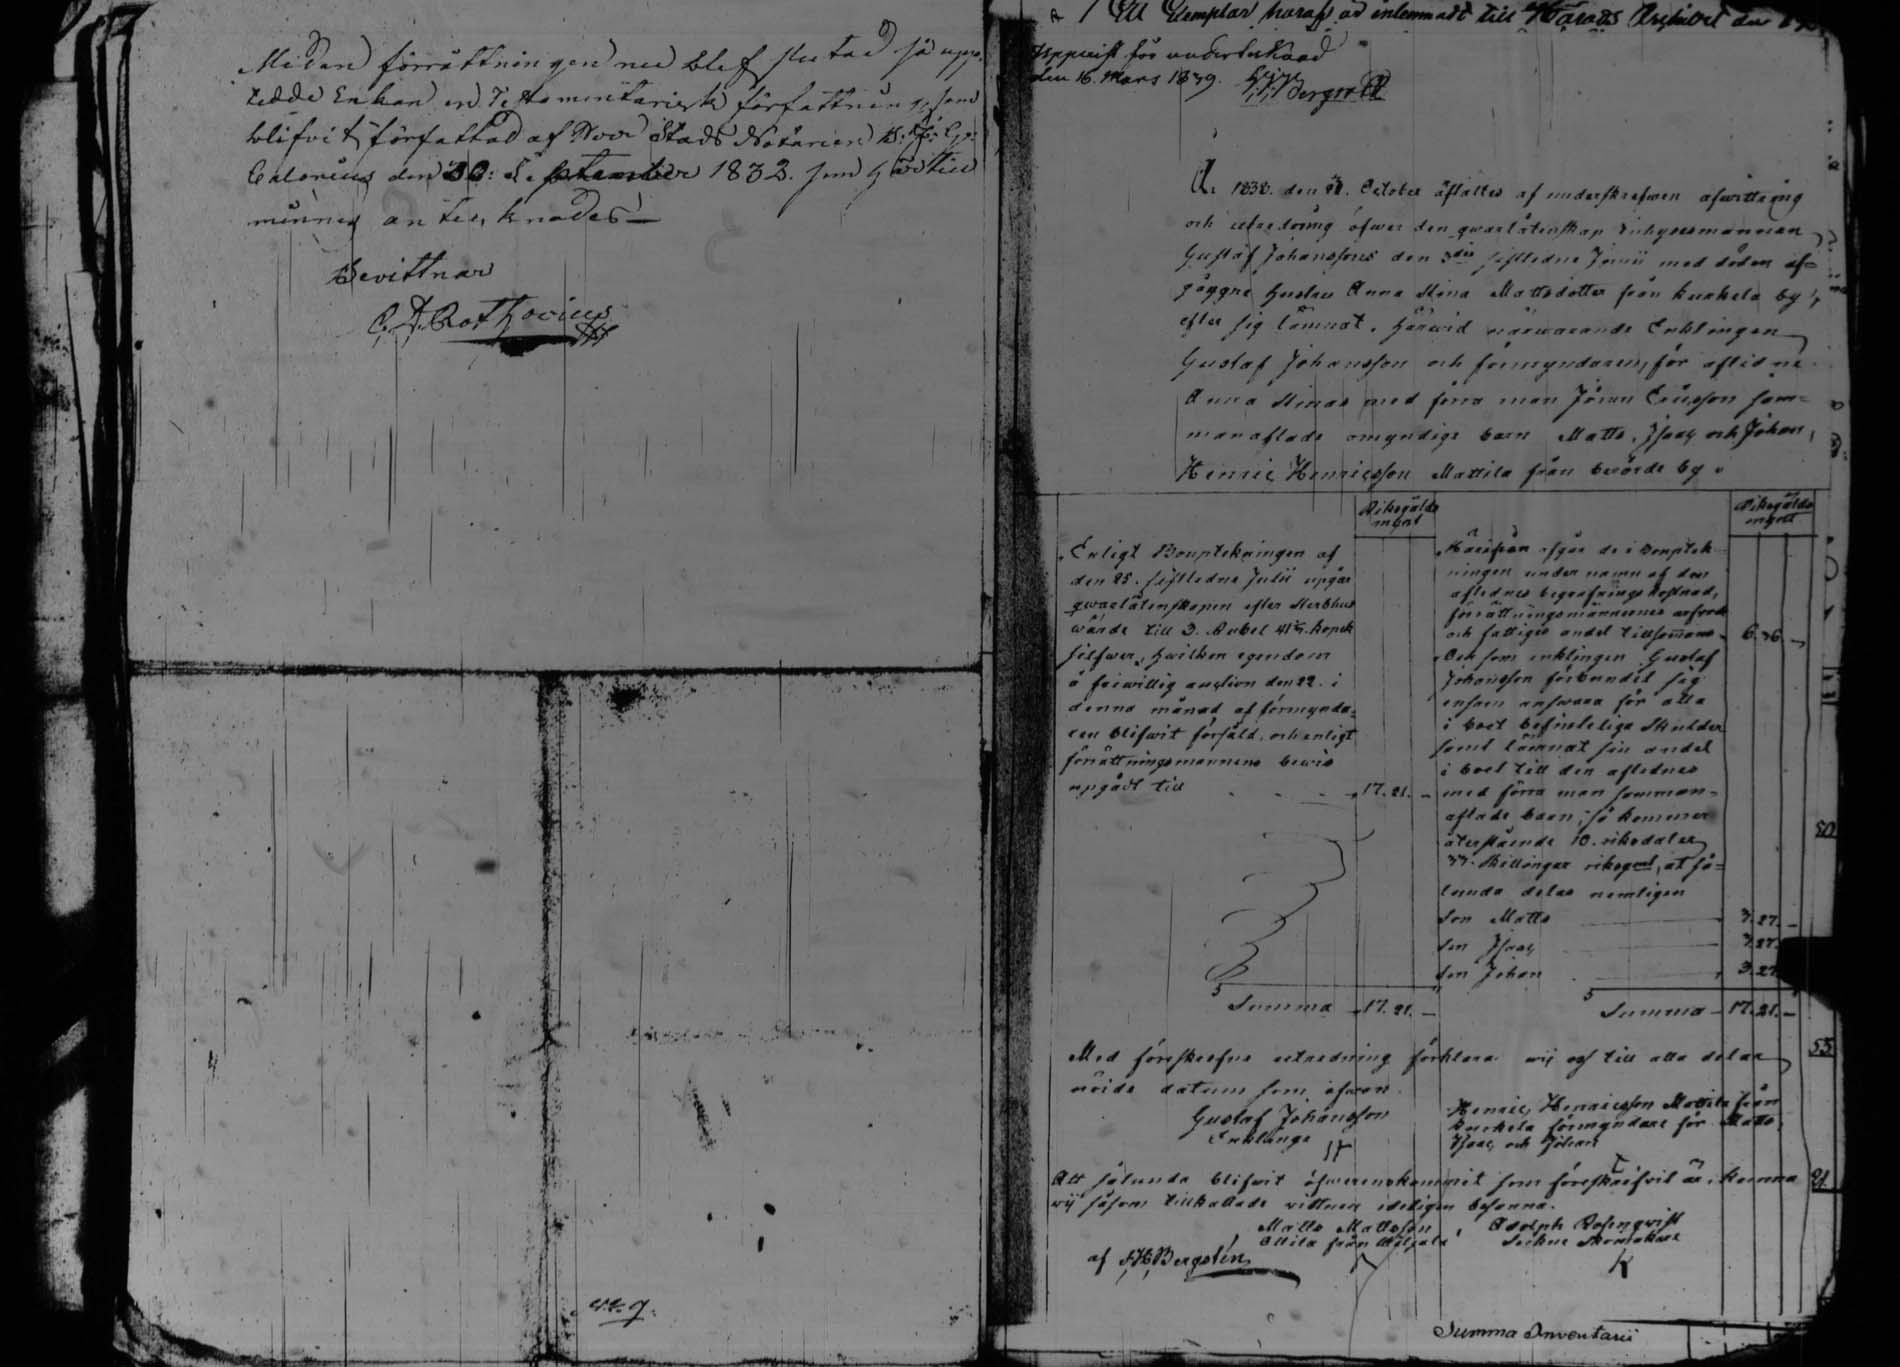 Medan förrättningen nu blef slutad så upp-
tedde Enkan en Testamentarisk författning, som
blifvit författad af Stads Notarien
Calonius den 30: September 1832. som härtill
minnes antecknades —
Bevittnar
C. A. Rothovius
Ett Exemplar häraf är inlemnadt till Härads Archivet den
Uppvist för undertecknad
den 16. Mars 1839.
Ao 1838. den October åflattes af underskrefwen afwittring
och utredning öfwer den qwarlåtenskap Inhysesmannen
Gustaf Johanssons den 3die sistledne Junii med döden af=
gågne hustru Anna Stina Mattsdotter från Kurkela by,
efter sig lämnat. Härwid närwarande Enklingen
Gustaf Johansson och förmyndaren för aflidne
Anna Stinas med förra man Jöran Ericsson sam=
manaflade omyndige barn Matts, Isaac och Johan,
Henric Henricsson Mattila från berörde by.
Riksgälds
mynt
Riksgälds
mynt
Enligt Bouptekningen af
den 25. sistledne Julii upgår
qwarlåtenskapen efter Sterbhus
wärde till 3. Rubel 41 kopek
silfwer, hwilken egendom
å friwillig auction den 22. i
denna månad af förmynda=
ren blifwit försåld, och enligt
förrättningsmannens bewis
upgådt till - - - 17. 21. -
Summa - 17. 21. -
Härifrån afgår de i Bouptek-
ningen under namn af den
aflednes begrafnings kostnad,
förrättningsmännernes arfvode
och fattiges andel tillsomans - 6. 36. -
Och som enklingen Gustaf
Johansson förbundit sig
ensam answara för alla
i boet befinteliga Skulder
samt lämnat sin andel
i boet till den aflednes
med förra man samman=
aflade barn, så kommer
återstående 10. riksdaler
33. Skillingar riksgmt, at så=
lunda delas nemligen
Son Matts 3. 27. -
Son Isaac 3. 27.
Son Johan 3. 27
Summa - 17. 21. -
50
Med föreskrefne utredning förklara wij oss till alla delar
nöide datum som ofwan.
53
Gustaf Johansson
Enklinge
Henric Henricsson Mattila från
Kurkela förmyndare för Matts,
Isaac och Johan
Att sålunda blifwit öfwerenskommit som föreskrifwit är, kunna
wij såsom tillkallade vittnen edeligen besanna.
21
Matts Mattsson
Ollila från
Adolph Rosenqvist
Sockne Skomakare
af F. H. Bergsten
Summa Inventarii